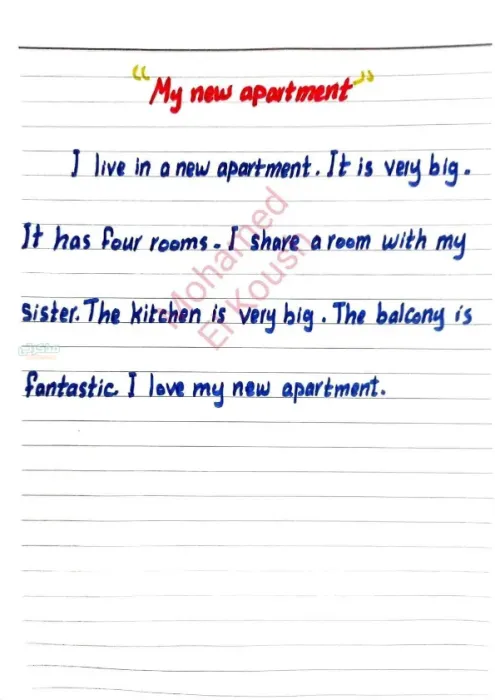 "My new apartment"
I live in a new apartment. It is very big.
It has four rooms. I share a room with my
sister. The kitchen is very big. The balcony is
fantastic. I love my new apartment.
Mohamed
El Koush